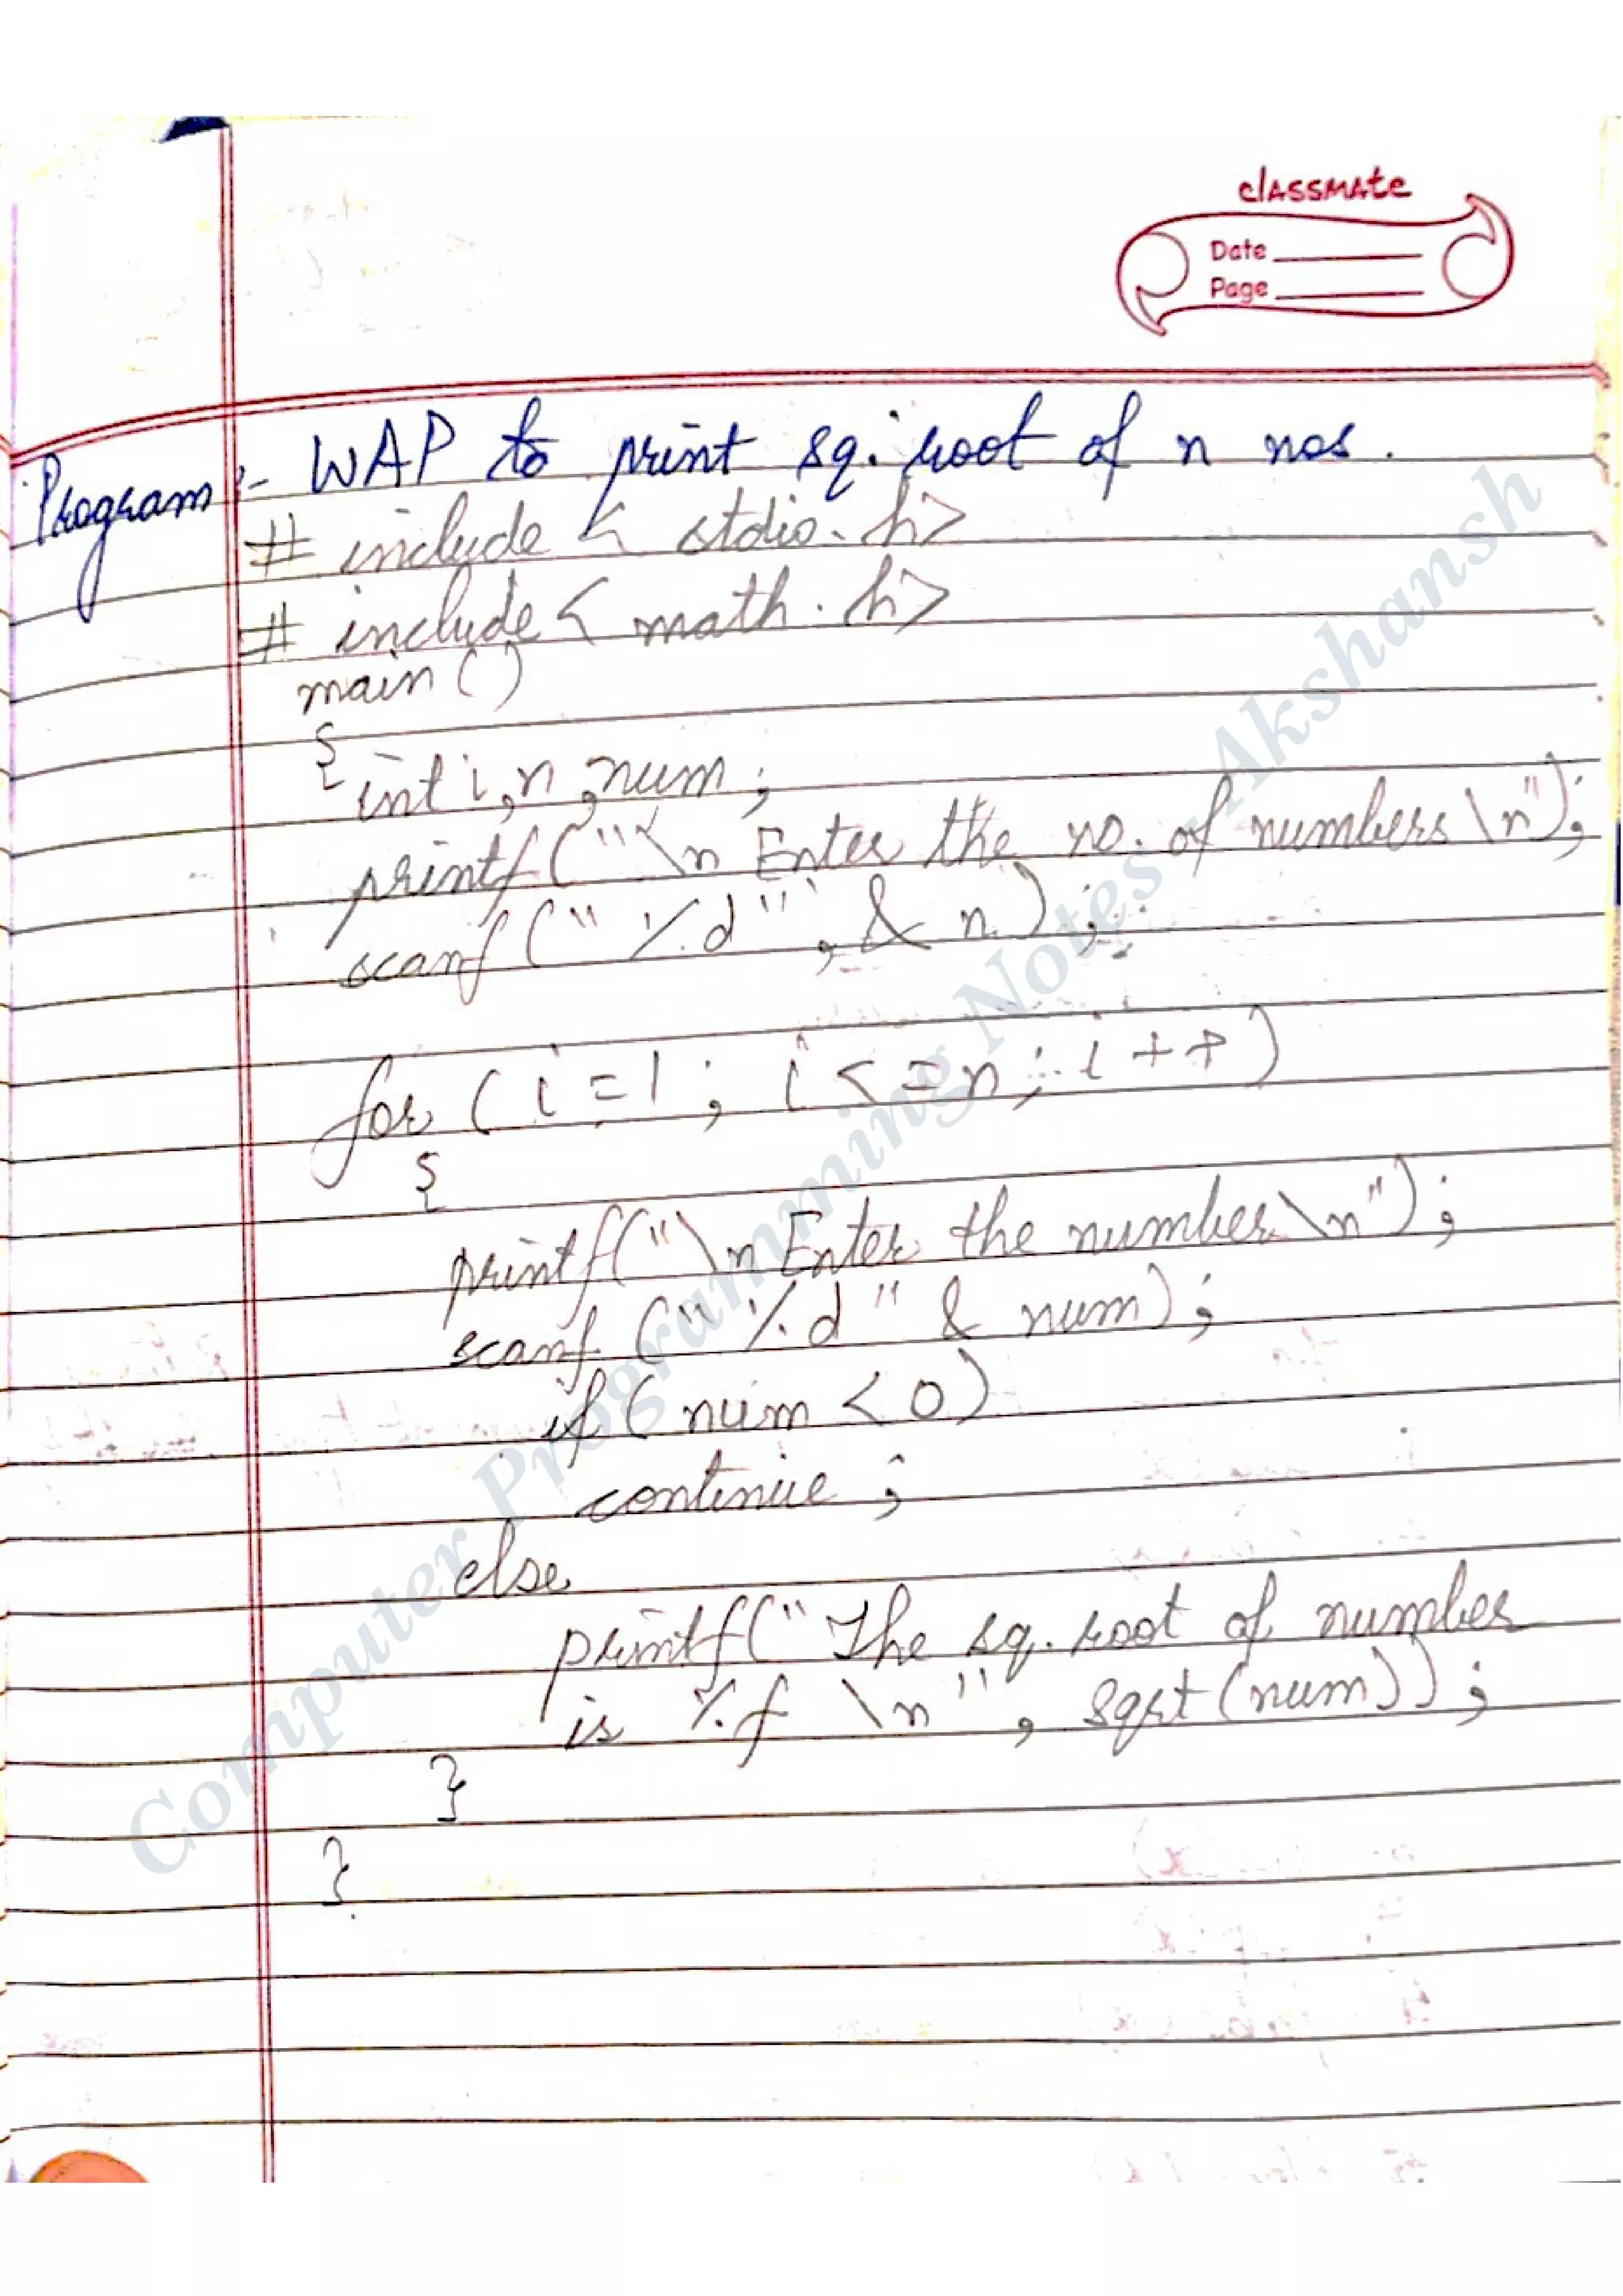 classmate
Date
Page
Program:- WAP to print sq. root of n nos.
# include < stdio.h>
# include < math.h>
main ()
{
int i, n, num;
printf ("\n Enter the no. of numbers \n");
scanf (" %d", & n);
for ( i = 1 ; i < = n ; i + + )
{
printf("\n Enter the number \n");
scanf (" %d " & num);
if ( num < 0 )
continue ;
else
printf(" The sq. root of number
is %f \n ", sqrt (num));
}
}
Computer Programming Notes-Akshansh